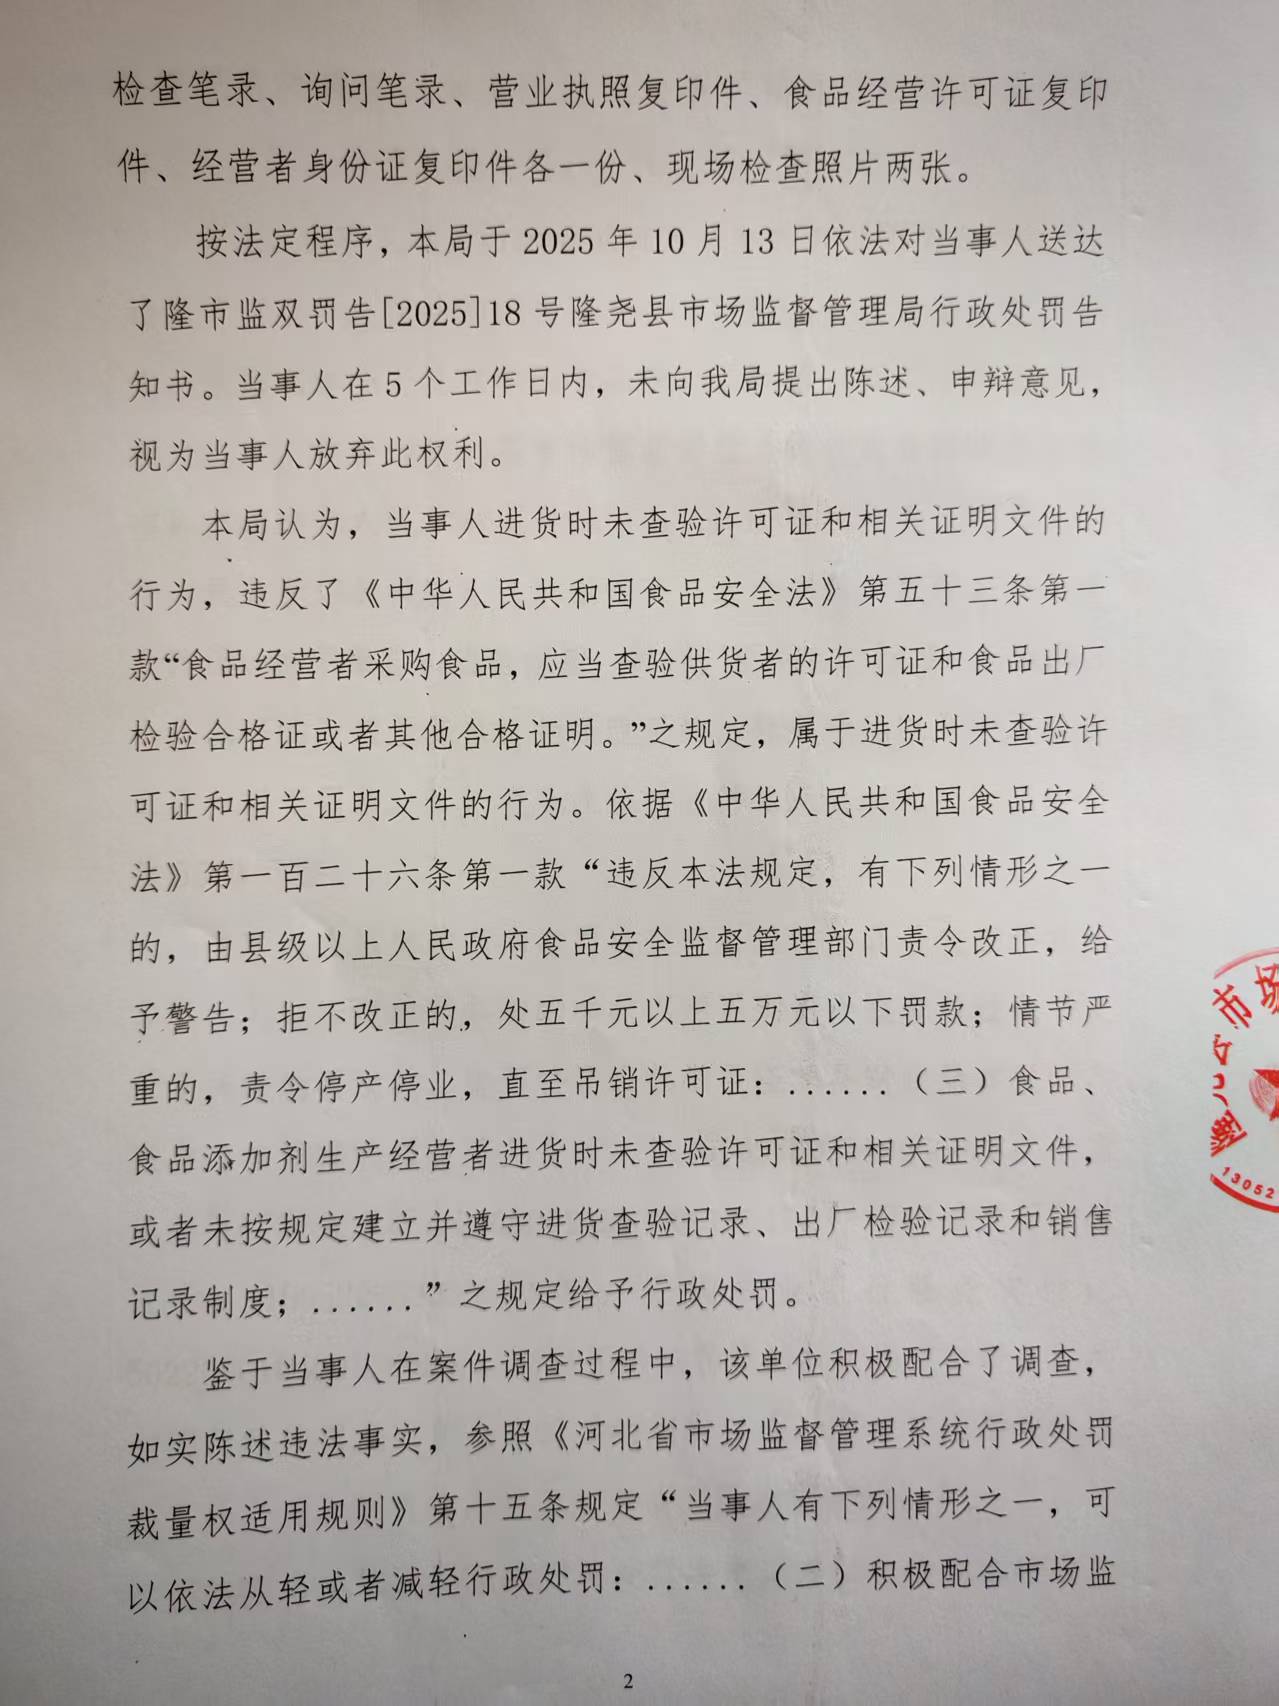 检查笔录、询问笔录、营业执照复印件、食品经营许可证复印
件、经营者身份证复印件各一份、现场检查照片两张。
按法定程序，本局于 2025 年 10 月 13 日依法对当事人送达
了隆市监双罚告[2025]18 号隆尧县市场监督管理局行政处罚告
知书。当事人在 5 个工作日内，未向我局提出陈述、申辩意见，
视为当事人放弃此权利。
本局认为，当事人进货时未查验许可证和相关证明文件的
行为，违反了《中华人民共和国食品安全法》第五十三条第一
款“食品经营者采购食品，应当查验供货者的许可证和食品出厂
检验合格证或者其他合格证明。”之规定，属于进货时未查验许
可证和相关证明文件的行为。依据《中华人民共和国食品安全
法》第一百二十六条第一款“违反本法规定，有下列情形之一
的，由县级以上人民政府食品安全监督管理部门责令改正，给
予警告；拒不改正的，处五千元以上五万元以下罚款；情节严
重的，责令停产停业，直至吊销许可证：......（三）食品、
食品添加剂生产经营者进货时未查验许可证和相关证明文件，
或者未按规定建立并遵守进货查验记录、出厂检验记录和销售
记录制度；......”之规定给予行政处罚。
鉴于当事人在案件调查过程中，该单位积极配合了调查，
如实陈述违法事实，参照《河北省市场监督管理系统行政处罚
裁量权适用规则》第十五条规定“当事人有下列情形之一，可
以依法从轻或者减轻行政处罚：......（二）积极配合市场监
2
市场
13052